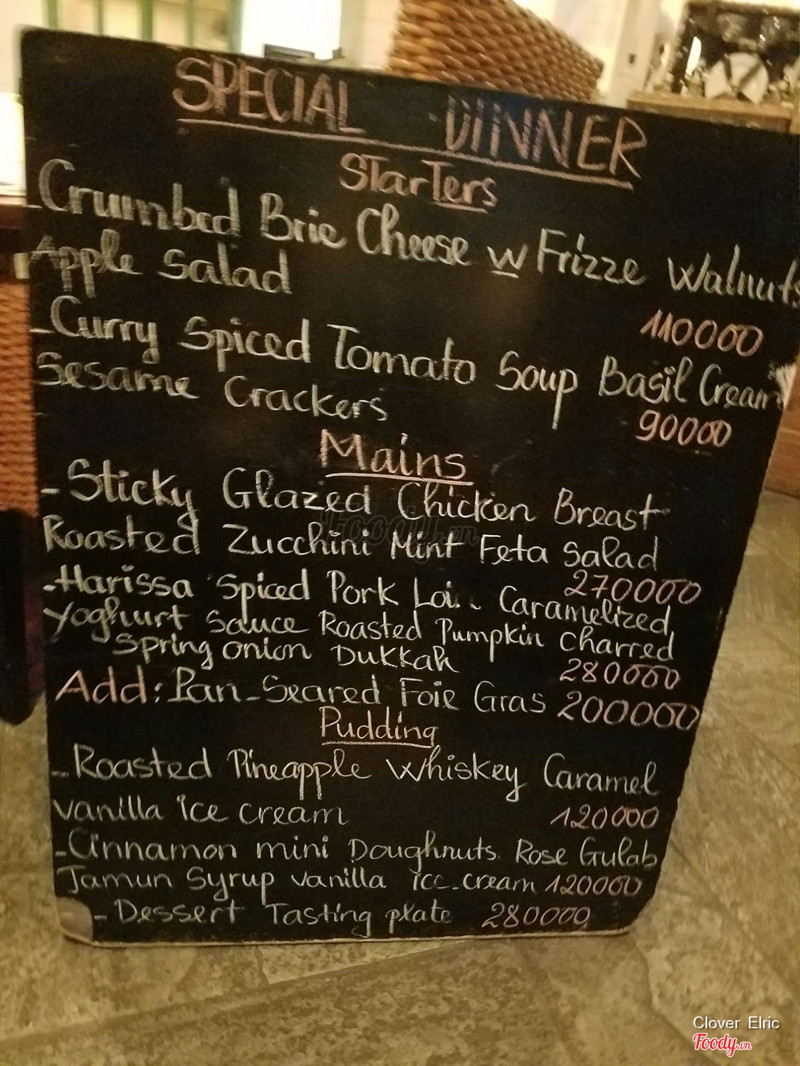 SPECIAL DINNER
Starters
-Crumbed Brie Cheese w Frizze Walnuts
Apple Salad
110000
-Curry Spiced Tomato Soup Basil Cream
Sesame Crackers
90000
Mains
-Sticky Glazed Chicken Breast
Roasted Zucchini Mint Feta Salad
270000
-Harissa Spiced Pork Loin Caramelized
Yoghurt Sauce Roasted Pumpkin Charred
Spring onion Dukkah
280000
Add: Pan-Seared Foie Gras 200000
Pudding
-Roasted Pineapple Whiskey Caramel
vanilla ice cream 120000
-Cinnamon mini Doughnuts Rose Gulab
Jamun Syrup vanilla ice-cream 120000
-Dessert Tasting plate 280000
Foody.vn
Clover Elric
Foody.vn